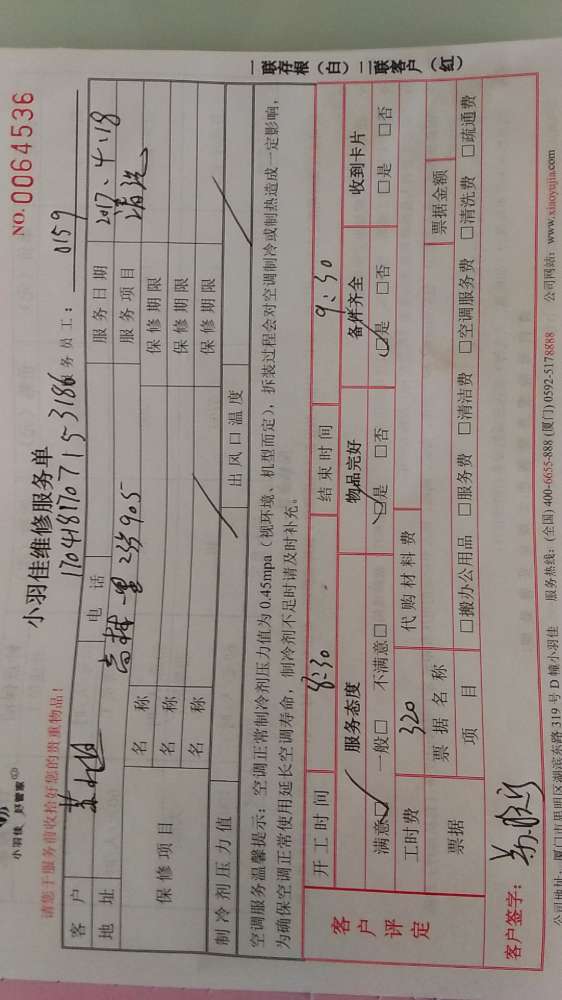 小羽佳 好管家
小羽佳维修服务单
NO. 0064536
请您于服务前收拾好您的贵重物品!
170418170715-3186 服务员工: 0159
客户 电话 服务日期 2017.4.18
地址 高林一里 服务项目 清洗
保修项目 名称 保修期限
名称 保修期限
名称 保修期限
制冷剂压力值 出风口温度
空调服务温馨提示: 空调正常制冷剂压力值为 0.45mpa(视环境、机型而定), 拆装过程会对空调制冷或制热造成一定影响,
为确保空调正常使用延长空调寿命, 制冷剂不足时请及时补充。
客户评定 开工时间 8:30 结束时间 9:30
服务态度 物品完好 备件齐全 收到卡片
满意□ 一般□ 不满意□ □是 □否 □是 □否 □是 □否
工时费 320 代购材料费
票据 票据名称 票据金额
项目 □搬办公用品 □服务费 □清洁费 □空调服务费 □清洗费 □疏通费
客户签字:
公司地址: 厦门市思明区湖滨东路 319 号 D 幢小羽佳 服务热线: (全国) 400-6655-888 (厦门) 0592-5178888 公司网站: www.xiaoyujia.com
一联存根(白) 二联客户(红)